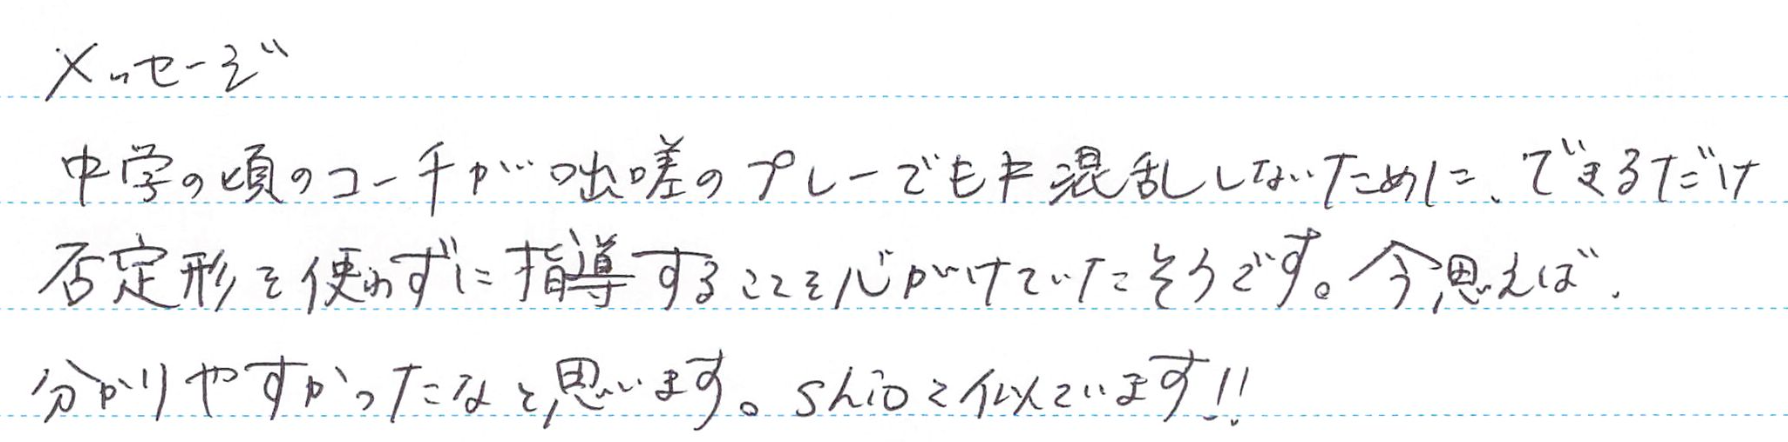 メッセージ
中学の頃のコーチが咄嗟のプレーでも混乱しないために、できるだけ
否定形を使わずに指導することを心がけていたそうです。今思えば、
分かりやすかったなと思います。shioと似ています!!